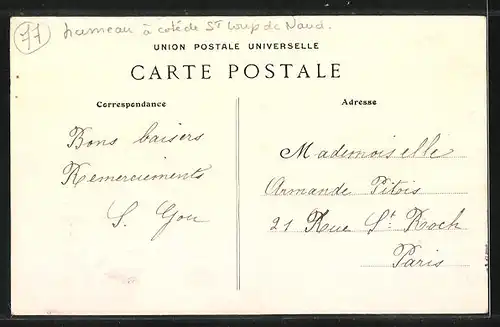 77 hameau à coté de St Loup de Naud.
UNION POSTALE UNIVERSELLE
CARTE POSTALE
Correspondance
Adresse
Bons baisers
Remerciements
S. Gou
Mademoiselle
Armande Pitois
21 Rue St Roch
Paris